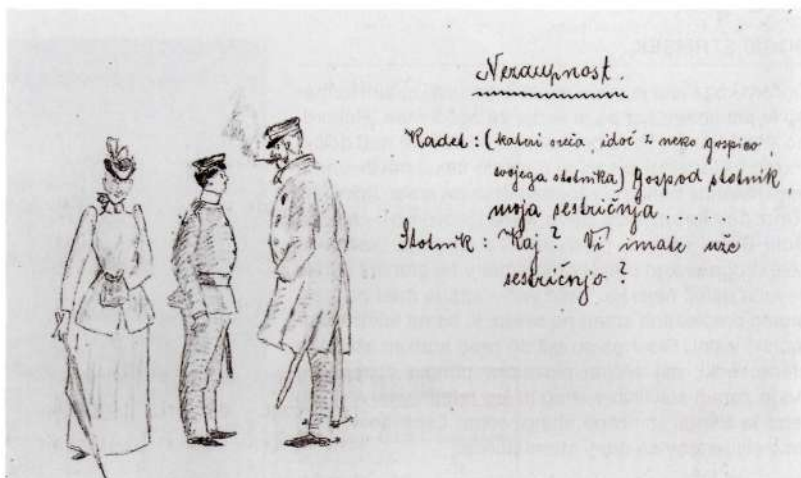 Nezaupnost.
Kadet: (kateri sreča, idoč z neko gospico
svojega stotnika) Gospod stotnik,
moja sestričnja
Stotnik: Kaj? Vi imate uže
sestričnjo?